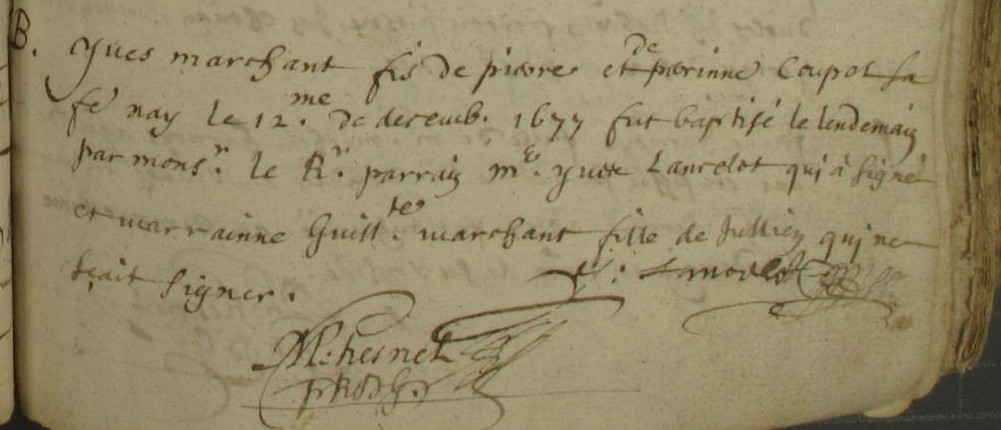 B. Yves marchant fis de pierre et de perinne Coupot sa
fe nay le 12.me de decemb. 1677 fut baptisé le lendemain
par monsr. le Rr. parrain me. yves Lancelot qui à signé
et marrainne Guillte. marchant fille de Jullien qui ne
sçait signer.
Y. Lancelot
M. hesnel